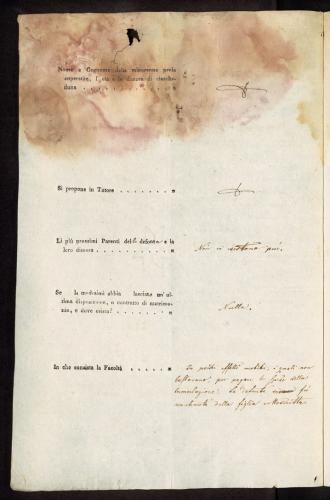 Nome e Cognome della minorenne prole
superstite, l'età e la dimora di ciasche-
duna . . . . . . . . . . . . . "
Si propone in Tutore . . . . . . . "
Li più prossimi Parenti della defonta e la
loro dimora . . . . . . . . . . . "
Non ci restano più.
Se la medesima abbia lasciata un'ul-
tima disposizione, o contratto di matrimo-
nio, e dove esista? . . . . . . . . "
Nulla.
In che consista la Facoltà . . . . . "
In pochi effetti mobili, i quali non
bastarono per pagare le spese della
tumulazione. La defonta fu
mantenuta dalla figlia